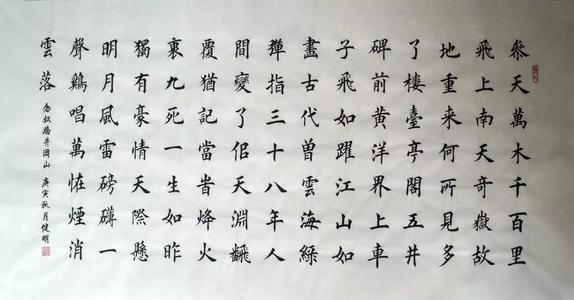 叅天萬木千百里
飛上南天奇嶽故
地重来何所見多
了樓臺亭閣五井
碑前黃洋界上車
子飛如躍江山如
畫古代曾雲海緑
彈指三十八年人
間變了佀天淵飜
覆猶記當旹烽火
裏九死一生如昨
獨有豪情天際懸
明月風雷磅礴一
聲鷄唱萬恠煙消
雲落
念奴嬌井岡山 庚寅秋月健明